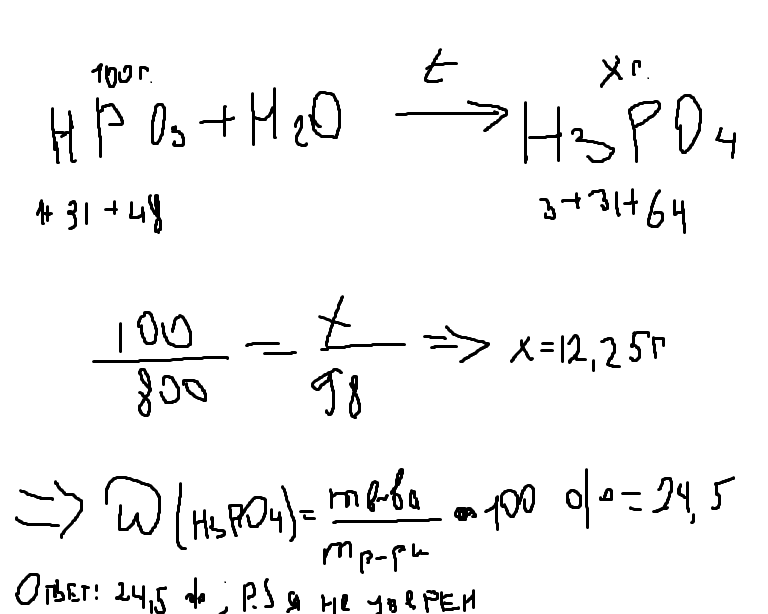 100г. t x г.
HPO₃ + H₂O → H₃PO₄
1+31+48 3+31+64
100/800 = x/98 => x=12,25г
=> W(H₃PO₄)= m в-ва/m р-ра · 100 % = 24,5
Ответ: 24,5 %, P.S я не уверен